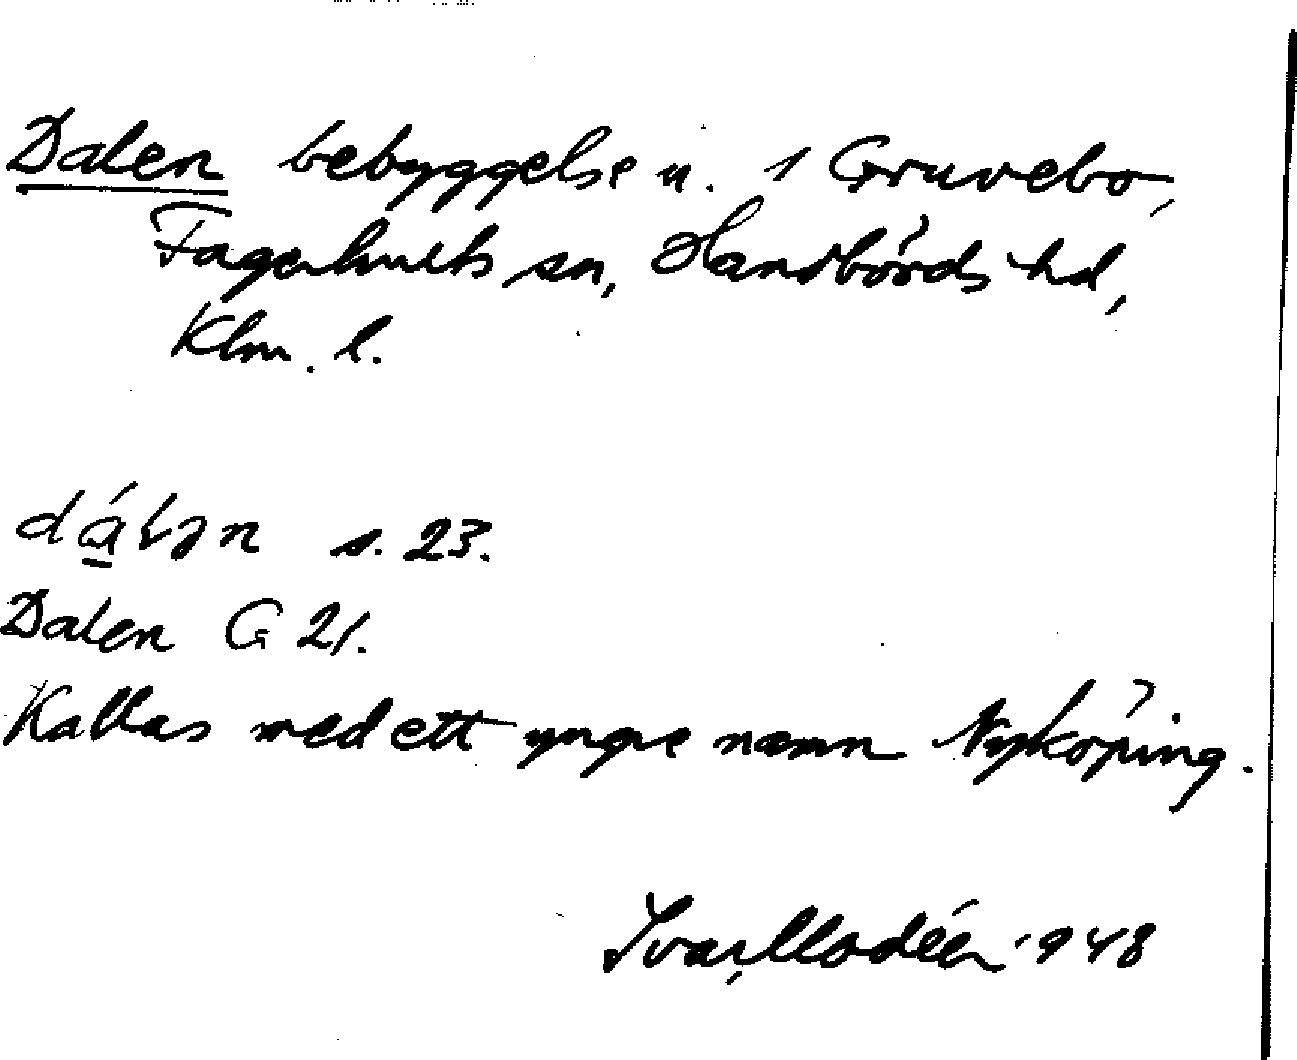 Dalen bebyggelse u. 1 Gruvebo,
Fagerhults sn, Handbörds hd,
Klm. l.
dálən s. 23.
Dalen G 21.
Kallas med ett yngre namn Nyköping.
Ivar Modéer 1948